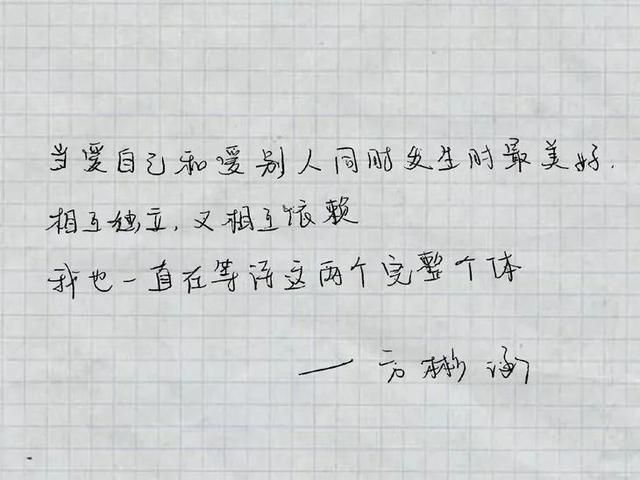 当爱自己和爱别人同时发生时最美好.
相互独立,又相互依赖
我也一直在等待这两个完整个体
——方彬涵